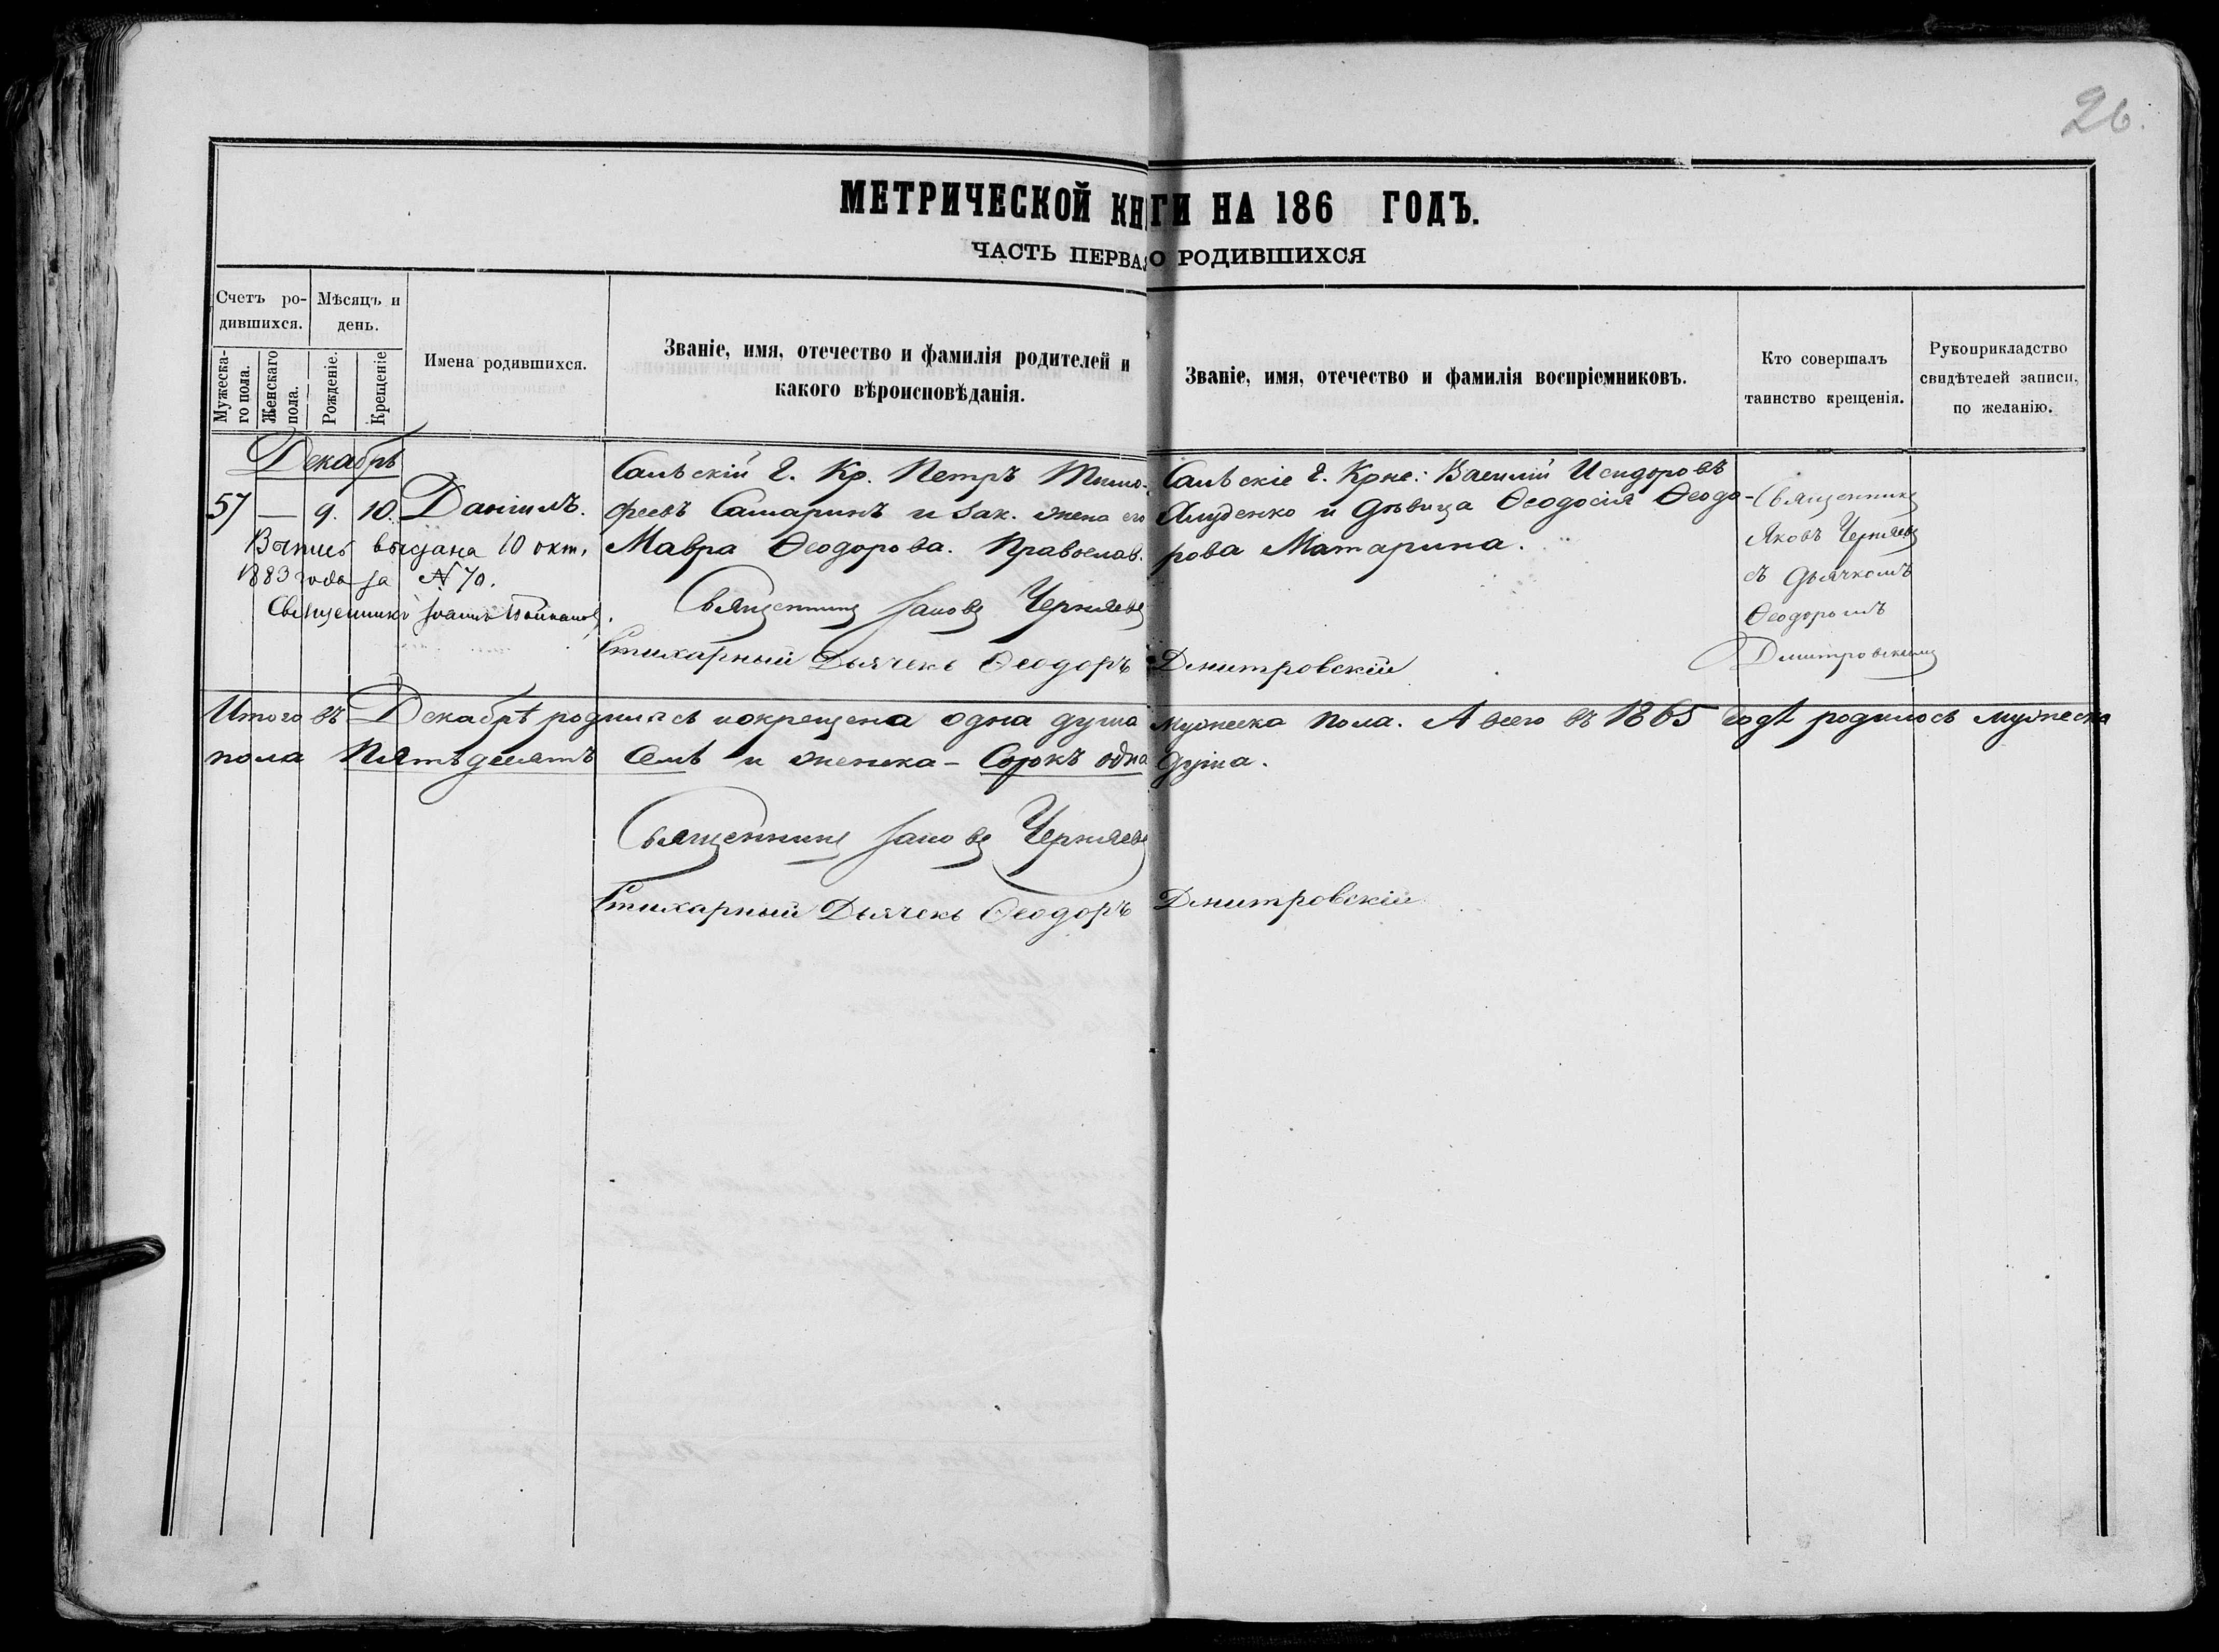 26.
МЕТРИЧЕСКОЙ КНИГИ НА 186 ГОДЪ.
ЧАСТЬ ПЕРВАЯ О РОДИВШИХСЯ
Счетъ ро-
дившихся.
Мужеска-
го пола.
Женскаго
пола.
Мѣсяцъ и
день.
Рожденіе.
Крещеніе
Имена родившихся.
Званіе, имя, отечество и фамилія родителей и
какого вѣроисповѣданія.
Званіе, имя, отечество и фамилія воспріемниковъ.
Кто совершалъ
таинство крещенія.
Рукоприкладство
свидѣтелей записи,
по желанію.
Декабрь
57 — 9. 10. Даніилъ.
Выпись выдана 10 окт.
1883 года за № 70.
Священникъ Іоаннъ
Сальскій Г. Кр. Петръ Тимо-
феевъ Самаринъ и зак. жена его
Мавра Ѳеодорова. Православ.
Священникъ Іаковъ Черняевъ
Стихарный Дьячекъ Ѳеодоръ Дмитровскій
Сальскіе Г. Крне: Василій Исидоровъ
и дѣвица Ѳеодосія Ѳеодо-
рова Матарина.
Священникъ
Яковъ Черняевъ
съ дьячкомъ
Ѳеодоромъ
Дмитровскимъ
Итого въ Декабрѣ родилась и окрещена одна душа мужеска пола. А всего въ 1865 годѣ родилось мужеска
пола Пятьдесятъ семь и женска – Сорокъ одна душа.
Священникъ Іаковъ Черняевъ
Стихарный Дьячекъ Ѳеодоръ Дмитровскій